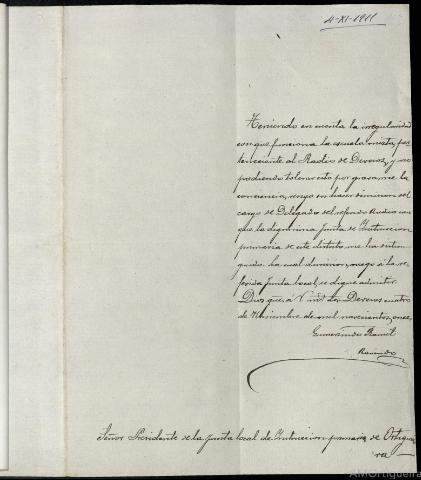 4-XI-1911
Teniendo en cuenta la irregularidad
con que funciona la escuela mixta, per-
teneciente al Radio de Devesos, y no
pudiendo tolerar esto por gravarme la
conciencia, vengo en hacer dimision del
cargo de Delegado del referido Radio con
que la dignisima Junta de Instruccion
primaria de este distrito me ha distin-
guido. La cual dimision, ruego á la re-
ferida Junta local, se digne admitir.
Dios gue. a V. m.s as. Devesos cuatro
de Noviembre de mil novecientos once
Gumersindo Ramil
Señor Presidente de la Junta local de Instruccion primaria de Ortiguei
ra
AMOrtigueira